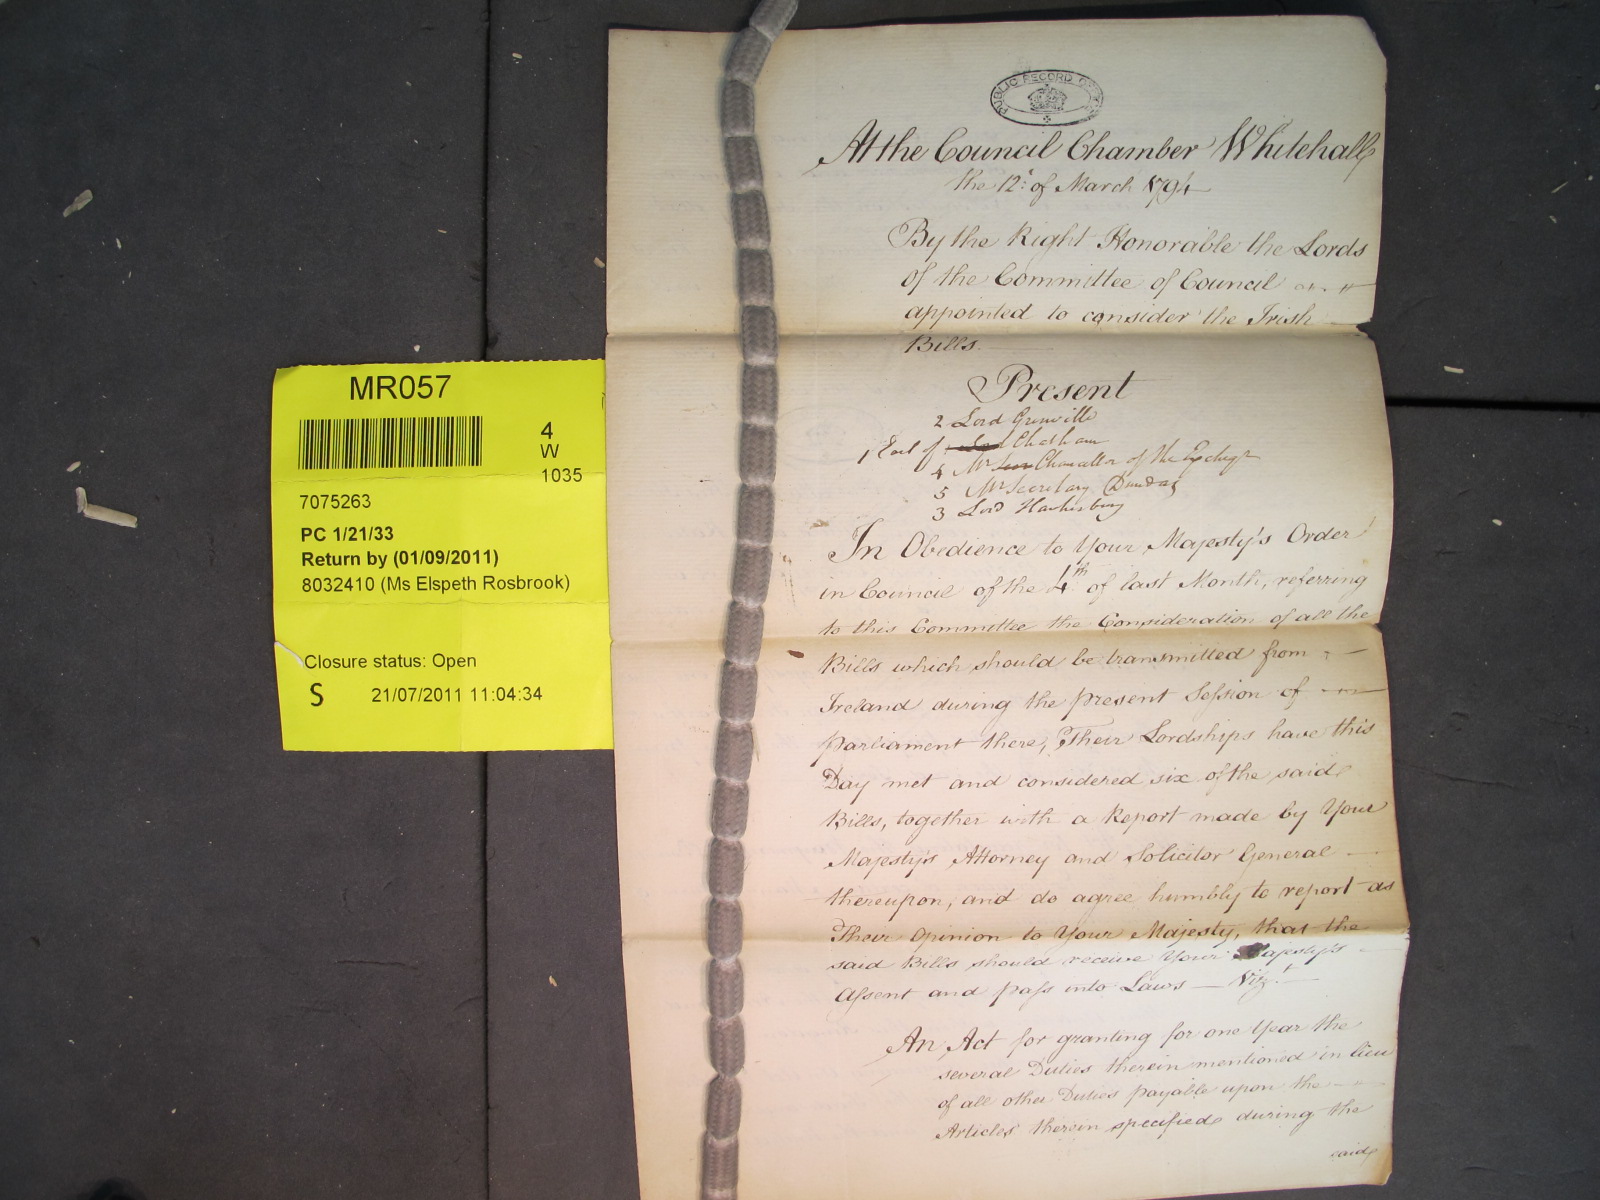 MR057
4
W
1035
7075263
PC 1/21/33
Return by (01/09/2011)
8032410 (Ms Elspeth Rosbrook)
Closure status: Open
S 21/07/2011 11:04:34
PUBLIC RECORD OFFICE
At the Council Chamber Whitehall
the 12th of March 1794
By the Right Honorable the Lords
of the Committee of Council
appointed to consider the Irish
Bills.
Present
2 Lord Grenville
1 Earl of Chatham
4 Mr Chancellor of the Excheqr
5 Mr Secretary Dundas
3 Lord Hawkesbury
In Obedience to Your Majesty's Order
in Council of the 4th of last Month, referring
to this Committee the Consideration of all the
Bills which should be transmitted from
Ireland during the present Session of
Parliament there, Their Lordships have this
Day met and considered six of the said
Bills, together with a Report made by Your
Majesty's Attorney and Solicitor General
thereupon, and do agree humbly to report as
Their Opinion to Your Majesty, that the
said Bills should receive Your Majesty's
Assent and pass into Laws — Vizt.
An Act for granting for one Year the
several Duties therein mentioned in lieu
of all other Duties payable upon the
Articles therein specified during the
said